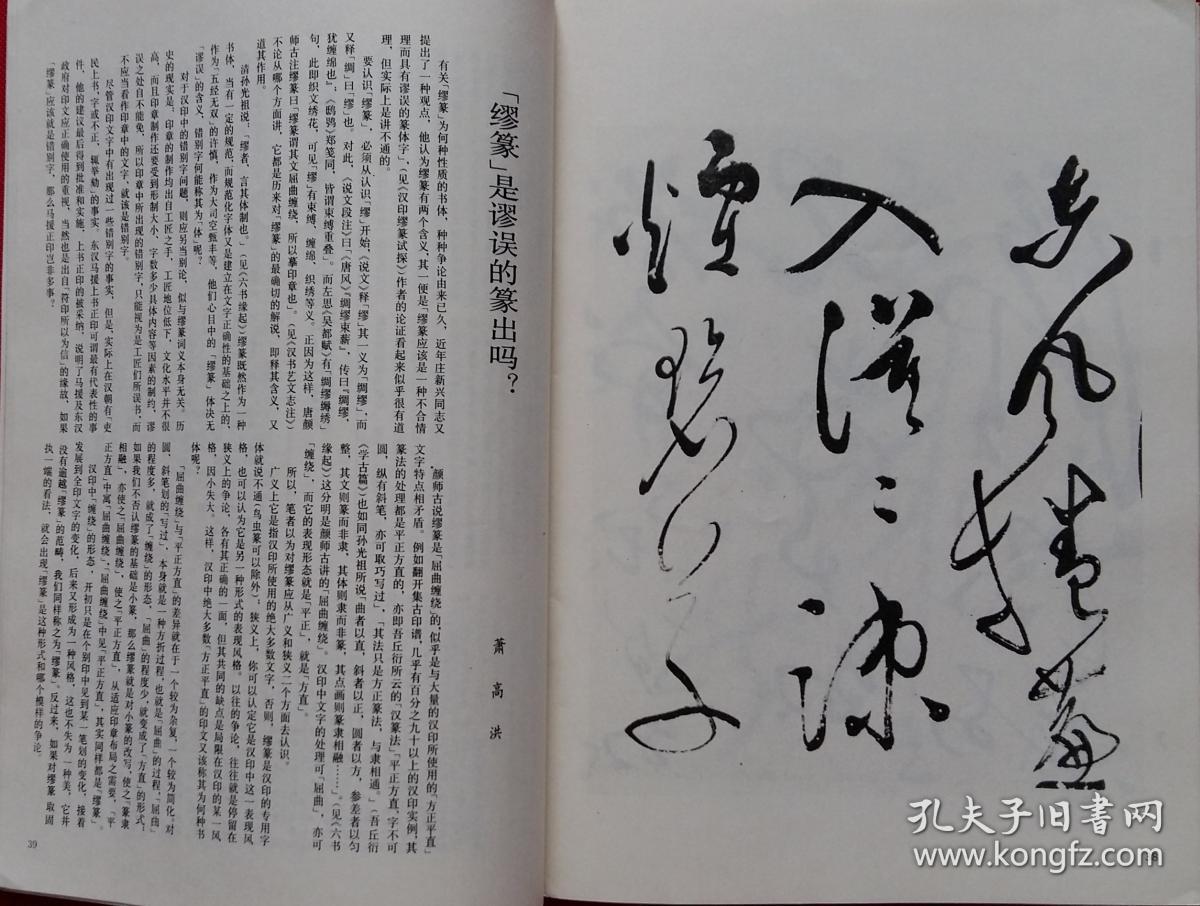 入
「缪篆」是谬误的篆出吗？
萧高洪
有关「缪篆」为何种性质的书体，种种争论由来已久，近年庄新兴同志又
提出了一种观点，他认为缪篆有两个含义，其一便是「缪篆应该是一种不合情
理而具有谬误的篆体字」，（见《汉印缪篆试探》）作者的论证看起来似乎很有道
理，但实际上是讲不通的。
要认识「缪篆」，必须从认识「缪」开始，《说文》释「缪」其一义为「绸缪」，而
又释「绸」曰「缪」也。对此，《说文段注》曰：《唐风》「绸缪束薪」，传曰「绸缪，
犹缠绵也」；《鸱鸮》郑笺同，皆谓束缚重叠」。而左思《吴都赋》有「绸缪缛绣」
句，此即织文绣花，可见「缪」有束缚、缠绵、织绣等义。正因为这样，唐颜
师古注缪篆曰「缪篆谓其文屈曲缠绕，所以摹印章也」。（见《汉书艺文志注》）
不论从哪个方面讲，它都是历来对「缪篆」的最确切的解说，即释其含义，又
道其作用。
清孙光祖说，「缪者，言其体制也。」（见《六书缘起》）缪篆既然作为一种
书体，当有一定的规范，而规范化字体又是建立在文字正确性的基础之上的，
作为「五经无双」的许慎，作为大司空甄丰等，他们心目中的「缪篆」体决无
「谬误」的含义，错别字何能称其为「体」呢？
对于汉印中的错别字问题，则应另当别论，似与缪篆词义本身无关。历
史的现实是：印章的制作均出自工匠之手，工匠地位低下，文化水平并不很
高，而且印章制作还要受到形制大小、字数多少具体内容等因素的制约，谬
误之处自不能免，所以印章中所出现的错别字，只能视为是工匠们所误书，而
不应当看作印章中的文字，就该是错别字。
尽管汉印文字中有出现过一些错别字的事实，但是，实际上在汉朝有「吏
民上书，字或不正，辄举劾」的事实，东汉马援上书正印可谓最有代表性的事
件，他的建议最后得到批准和实施，上书正印的被采纳，说明了马援及东汉
政府对印文应正确使用的重视，当然也是出自「符印所以为信」的缘故，如果
「缪篆」应该就是错别字，那么马援正印岂非多事？
颜师古说缪篆是「屈曲缠绕」的，似乎是与大量的汉印所使用的「方正平直」
文字特点相矛盾。例如翻开集古印谱，几乎有百分之九十以上的汉印实例，其
篆法的处理都是平正方直的，亦即吾丘衍所云的「汉篆法」「平正方直，字不可
圆，纵有斜笔，亦可取巧写过」，「其法只是方正篆法，与隶相通。」（吾丘衍
《学古篇》）也如同孙光祖所说「曲者以直，斜者以正，圆者以方，参差者以匀
整，其文则篆而非隶，其体则隶而非篆，其点画则篆隶相融……。」（见《六书
缘起》）这分明是颜师古讲的「屈曲缠绕」。汉印中文字的处理可「屈曲」，亦可
「缠绕」，而它的表现形态就是「平正」，就是「方直」。
所以，笔者以为对缪篆应从广义和狭义二个方面去认识。
广义上它是指汉印所使用的绝大多数文字，否则，缪篆是汉印的专用字
体就说不通（鸟虫篆可以除外）；狭义上，你可以认定它是汉印中这一表现风
格，也可以认为它是另一种形式的表现风格。以往的争论，往往就是停留在
狭义上的争论，各有其正确的一面，但其共同的缺点是局限在汉印的某一风
格，因小失大，这样，汉印中绝大多数「方正平直」的印文又该称其为何种书
体呢？
「屈曲缠绕」与「平正方直」的差异就在于一个较为杂复，一个较为简化。对
圆，斜笔划的「写过」，本身就是一种方折过程，也就是「屈曲」的过程，「屈曲」
的程度多，就成了「缠绕」的形态，「屈曲」的程度少，就变成了「方直」的形式，
如果我们不否认缪篆的基础是小篆，那么缪篆就是对小篆的改写，使之「篆隶
相融」，亦使之「屈曲缠绕」，使之「平正方直」，从适应印章布局之需要，「平
正方直」中寓「屈曲缠绕」，「屈曲缠绕」中见「平正方直」，其实同样都是「缪篆」。
汉印中「缠绕」的形态，开初只是在个别印中见到某一笔划的变化，接着
发展到全印文字的变化，后来又形成为一种风格，这也不失为一种美，它并
没有逾越「缪篆」的范畴，我们同样称之为「缪篆」。反过来，如果对缪篆取固
执一端的看法，就会出现「缪篆」是这种形式和哪个模样的争论。
39
孔夫子旧书网
www.kongfz.com